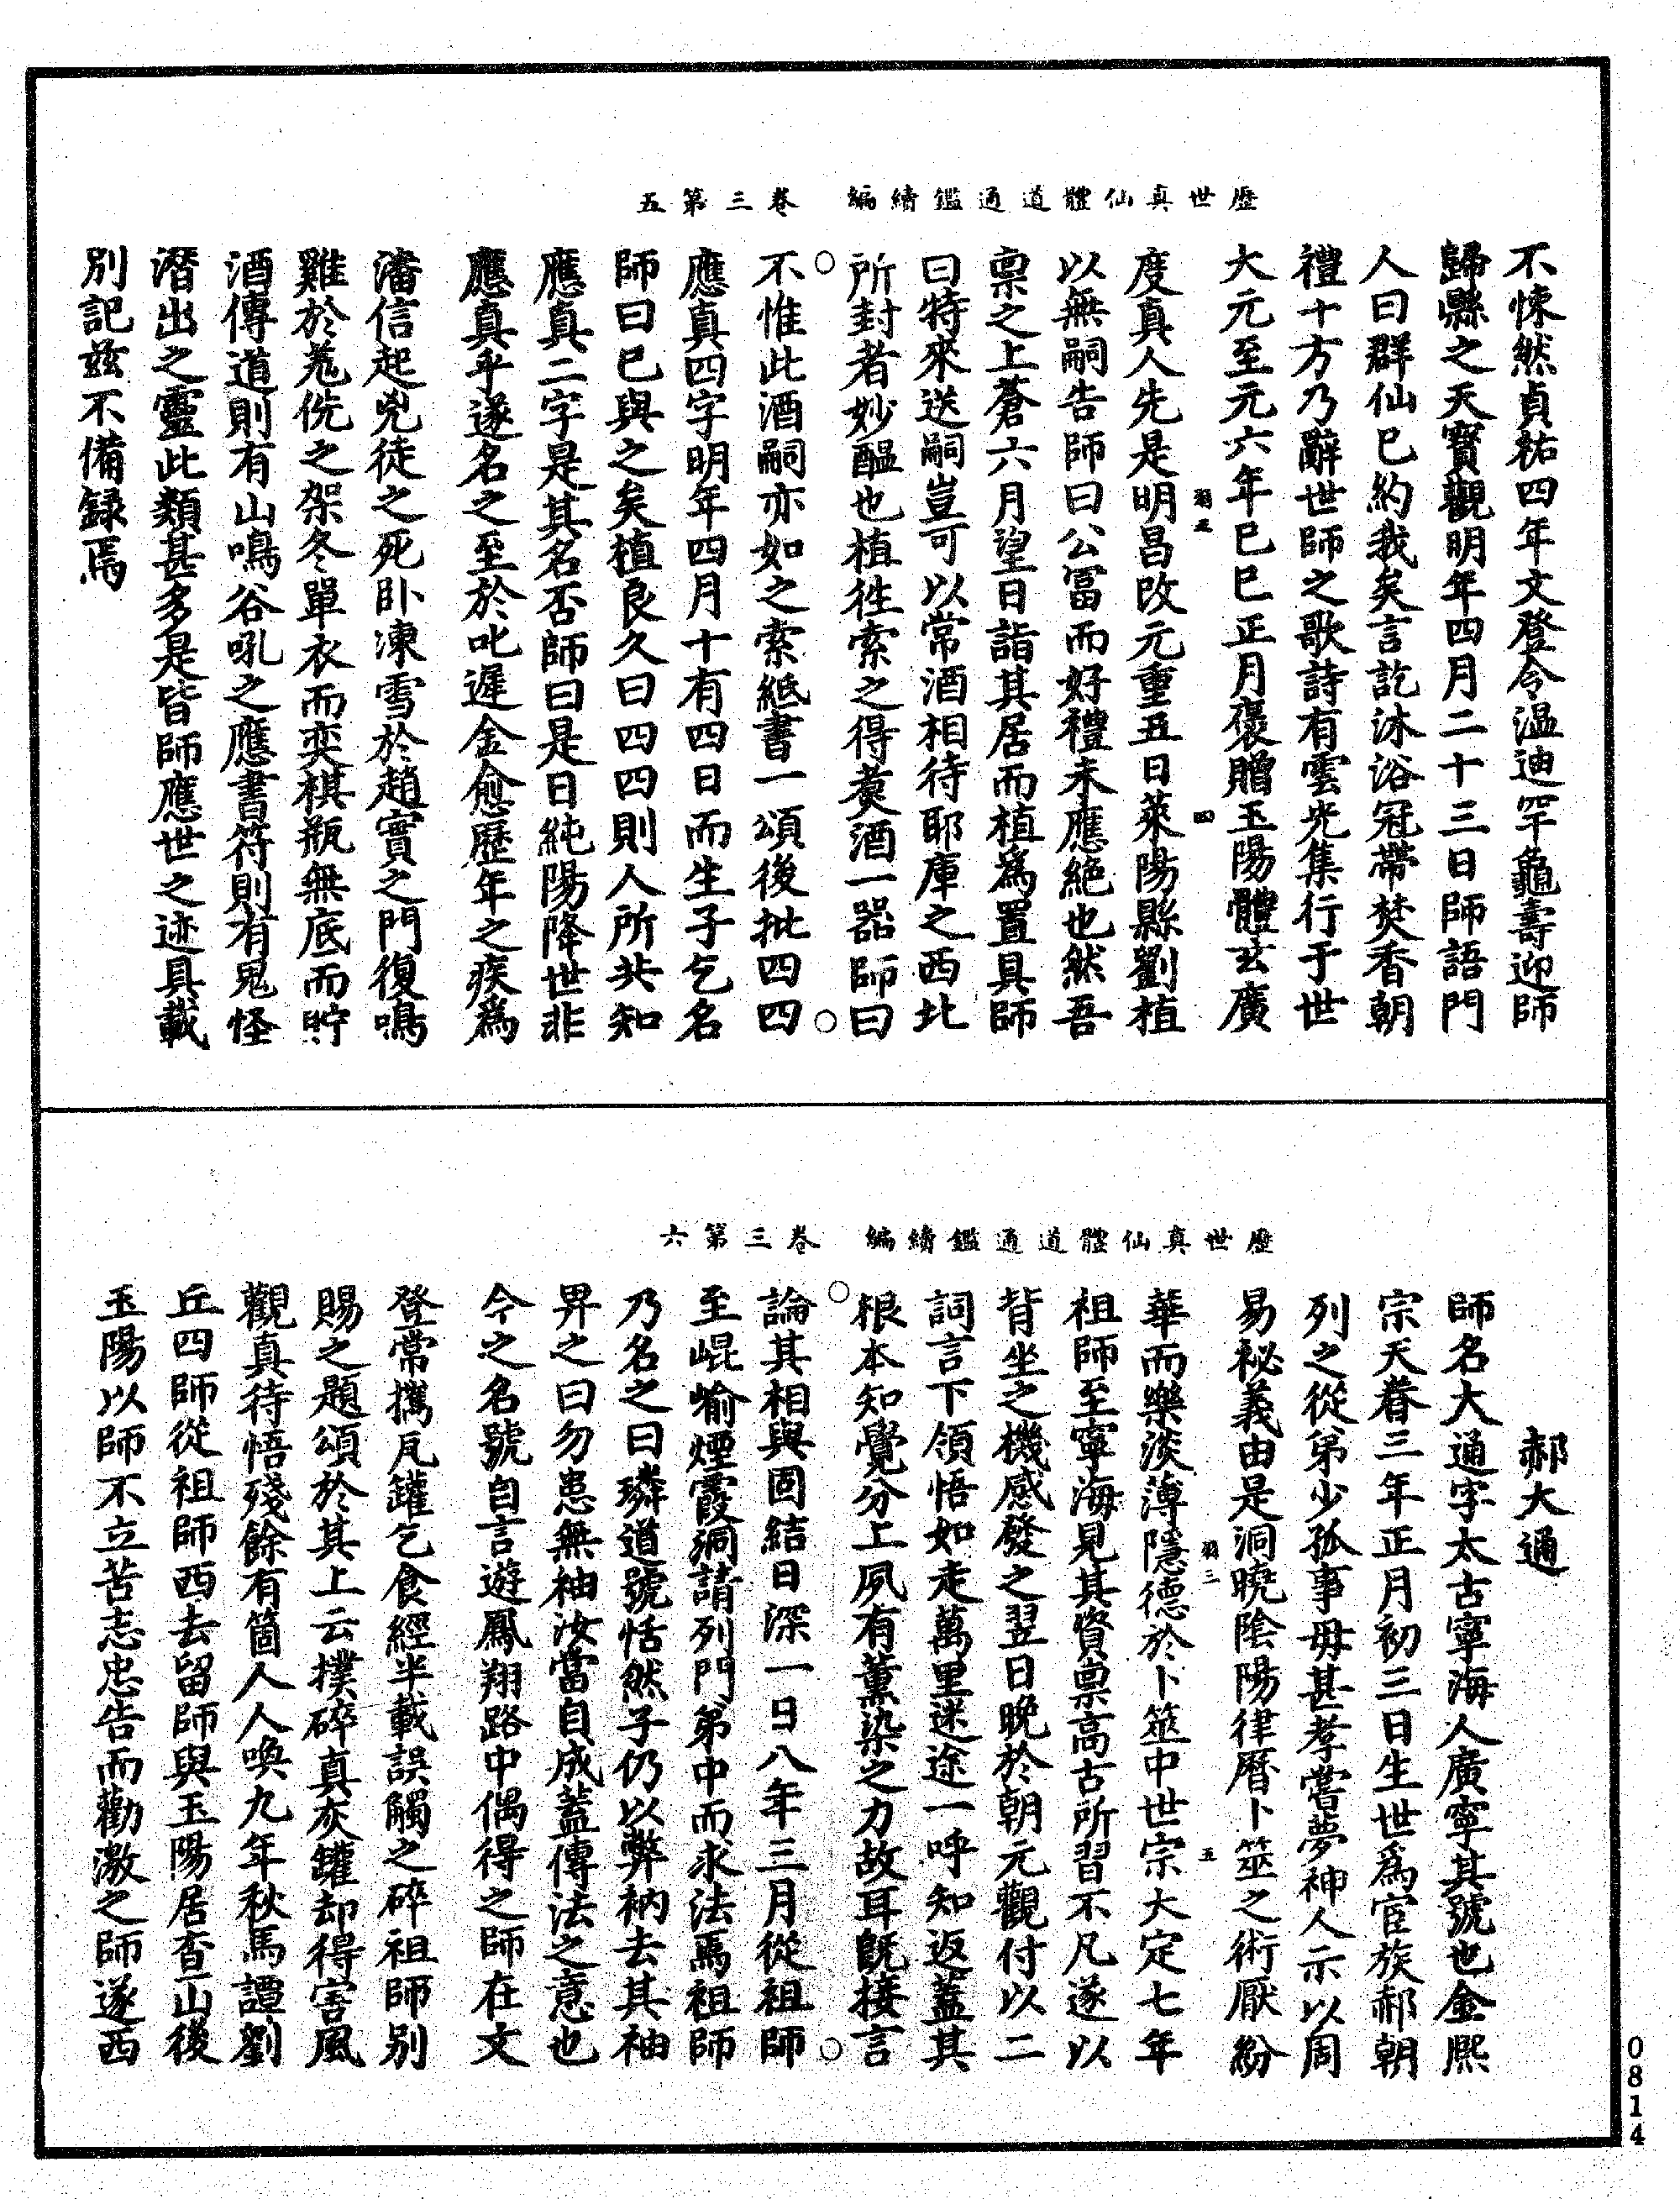 歷世真仙體道通鑑續編　卷三第五
不悚然貞祐四年文登令溫迪罕龜壽迎師
歸縣之天寶觀明年四月二十三日師語門
人曰群仙已約我矣言訖沐浴冠帶焚香朝
禮十方乃辭世師之歌詩有雲光集行于世
大元至元六年己巳正月褒贈玉陽體玄廣
度真人先是明昌改元重五日萊陽縣劉植
以無嗣告師曰公富而好禮未應絶也然吾
禀之上蒼六月望日詣其居而植爲置具師
曰特來送嗣豈可以常酒相待耶庫之西北
所封者妙醖也植徃索之得煑酒一器師曰
不惟此酒嗣亦如之索紙書一頌後批四四
應真四字明年四月十有四日而生子乞名
師曰已與之矣植良久曰四四則人所共知
應真二字是其名否師曰是日純陽降世非
應真乎遂名之至於叱遲金愈歷年之疾爲
潘信起兇徒之死卧凍雪於趙實之門復鳴
雞於羗侁之架冬單衣而奕棋瓶無底而貯
酒傳道則有山鳴谷吼之應書符則有鬼怪
潛出之靈此類甚多是皆師應世之迹具載
別記兹不備録焉
翔五
四
歷世真仙體道通鑑續編　卷三第六
郝大通
師名大通字太古寧海人廣寧其號也金熙
宗天眷三年正月初三日生世爲宦族郝朝
列之從弟少孤事母甚孝嘗夢神人示以周
易祕義由是洞曉陰陽律曆卜筮之術厭紛
華而樂淡薄隱德於卜筮中世宗大定七年
祖師至寧海見其資禀高古所習不凡遂以
背坐之機感發之翌日晚於朝元觀付以二
詞言下領悟如走萬里迷途一呼知返蓋其
根本知覺分上夙有薰染之力故耳既接言
論其相與固結日深一日八年三月從祖師
至崐嵛煙霞洞請列門弟中而求法焉祖師
乃名之曰璘道號恬然子仍以弊衲去其袖
畀之曰勿患無袖汝當自成蓋傳法之意也
今之名號自言遊鳳翔路中偶得之師在文
登常攜瓦罐乞食經半載誤觸之碎祖師別
賜之題頌於其上云撲碎真灰罐却得害風
觀真待悟殘餘有箇人人喚九年秋馬譚劉
丘四師從祖師西去留師與玉陽居查山後
玉陽以師不立苦志忠告而勸激之師遂西
翔三
五
0814